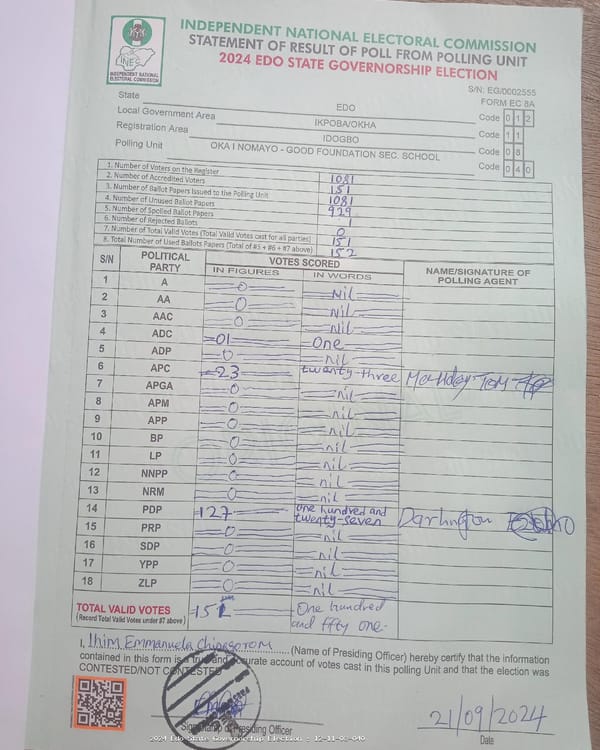 INDEPENDENT NATIONAL ELECTORAL COMMISSION
STATEMENT OF RESULT OF POLL FROM POLLING UNIT
2024 EDO STATE GOVERNORSHIP ELECTION
INEC
INDEPENDENT NATIONAL
ELECTORAL COMMISSION
S/N. EG/0002555
FORM EC 8A
State EDO Code 0 1 2
Local Government Area IKPOBA/OKHA Code 1 1
Registration Area IDOGBO Code 0 8
Polling Unit OKA I NOMAYO - GOOD FOUNDATION SEC. SCHOOL Code 0 4 0
1. Number of Voters on the Register 1081
2. Number of Accredited Voters 151
3. Number of Ballot Papers Issued to the Polling Unit 1081
4. Number of Unused Ballot Papers 929
5. Number of Spoiled Ballot Papers 1
6. Number of Rejected Ballots 0
7. Number of Total Valid Votes (Total Valid Votes cast for all parties) 151
8. Total Number of Used Ballots Papers (Total of #5 + #6 + #7 above) 152
S/N POLITICAL PARTY VOTES SCORED NAME/SIGNATURE OF POLLING AGENT
IN FIGURES IN WORDS
1 A 0 Nil
2 AA 0 Nil
3 AAC 0 Nil
4 ADC 01 One
5 ADP 0 nil
6 APC 23 twenty-three Monday Tom
7 APGA 0 nil
8 APM 0 nil
9 APP 0 nil
10 BP 0 nil
11 LP 0 nil
12 NNPP 0 nil
13 NRM 0 nil
14 PDP 127 one hundred and twenty-seven Darlington
15 PRP 0 nil
16 SDP 0 nil
17 YPP 0 nil
18 ZLP 0 nil
TOTAL VALID VOTES 151 One hundred
(Record Total Valid Votes under #7 above) and fifty one.
I, Ihim Emmanuela Chinesorom (Name of Presiding Officer) hereby certify that the information
contained in this form is a true and accurate account of votes cast in this polling Unit and that the election was
CONTESTED/NOT CONTESTED
Signature of Presiding Officer
21/09/2024
Date
2024 Edo State Governorship Election : 12-11-08-040